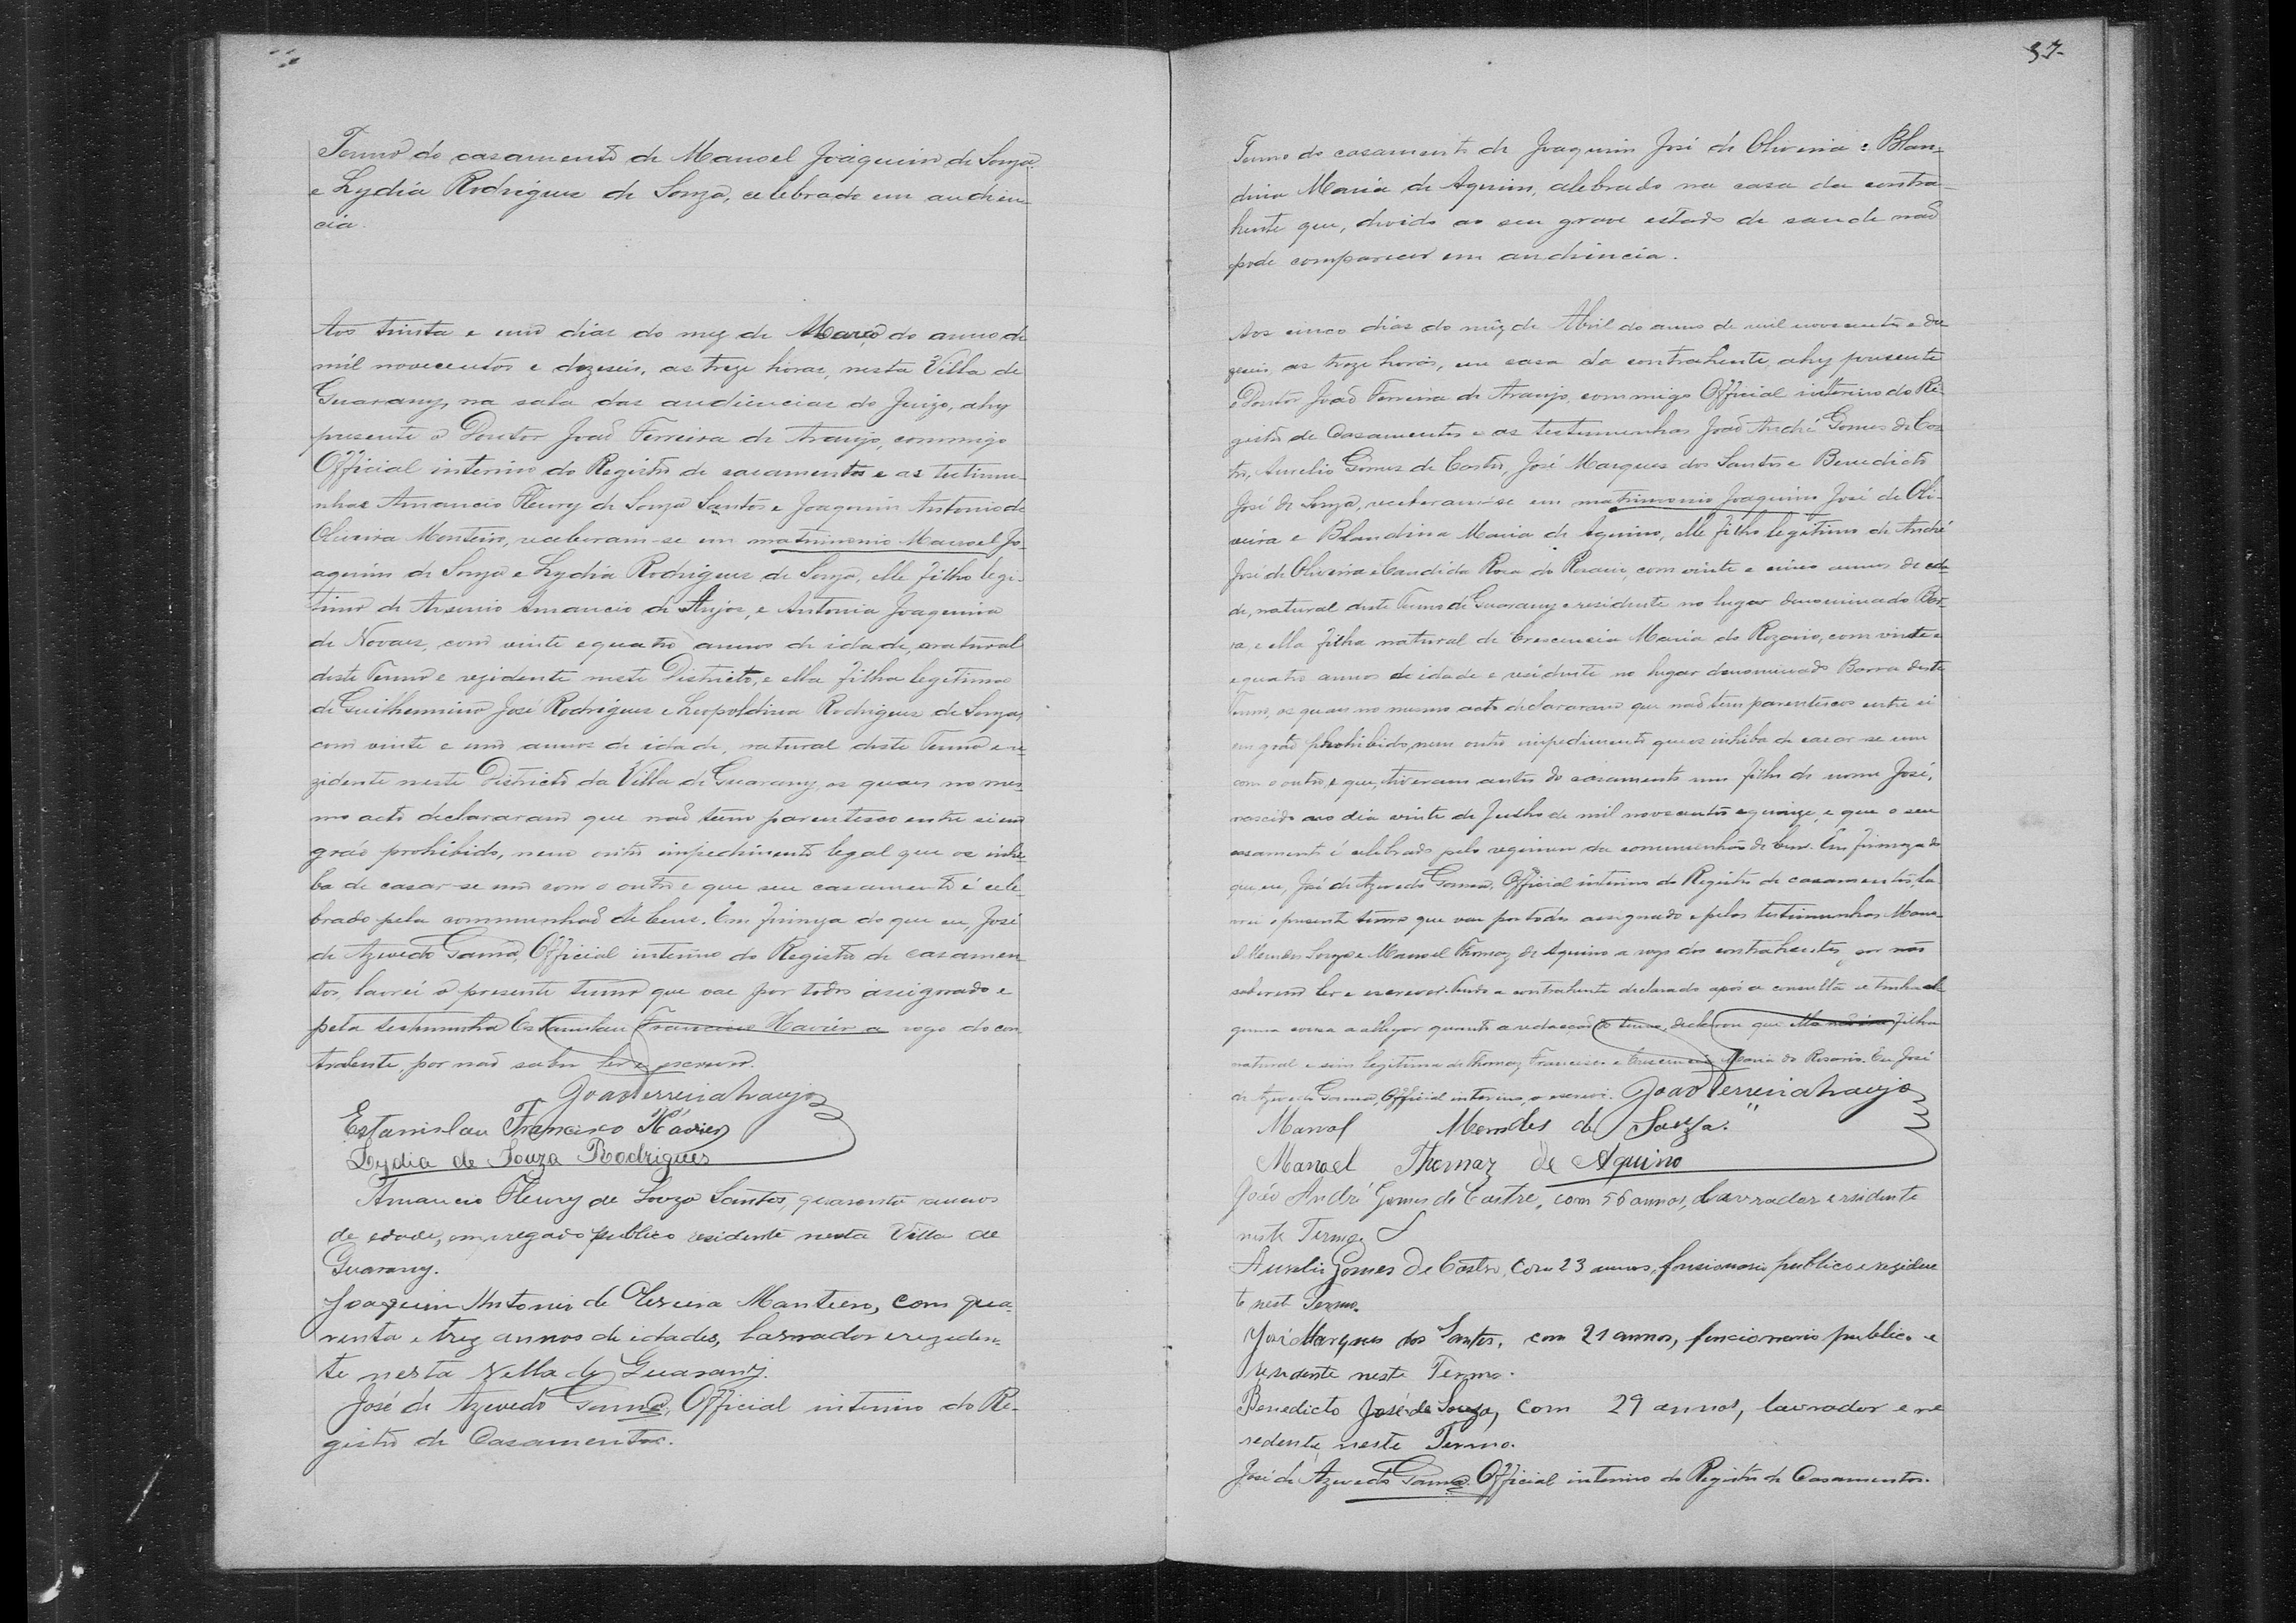 Termo do casamento de Manoel Joaquim de Souza
e Lydia Rodrigues de Souza, celebrado em audien-
cia.
Aos trinta e um dias do mez de Março do anno de
mil novecentos e dezeseis, as treze horas, nesta Villa de
Guarany, na sala das audiencias do Juizo, ahy
presente o Doutor João Ferreira de Araujo, commigo
Official interino do Registro de casamentos e as testimu-
nhas Amancio Fleury de Souza Santos e Joaquim Antonio de
Oliveira Monteiro, receberam-se em matrimonio Manoel Jo-
aquim de Souza e Lydia Rodrigues de Souza, elle filho legi-
timo de Arsenio Amancio de Anjos, e Antonia Joaquina
de Novaes, com vinte e quatro annos de idade, natural
deste Termo e rezidente neste Districto, e ella filha legitima
de Guilhermino José Rodrigues e Leopoldina Rodrigues de Souza,
com vinte e um annos de idade, natural deste Termo e re
zidente neste Districto da Villa de Guarany, os quaes no mes-
mo acto declararam que não teem parentesco entre si em
gráo prohibido, nem outro impedimento legal que os inhi-
ba de casar-se um com o outro e que seu casamento é cele-
brado pela communhão de bens. Em firmeza do que eu, José
de Azevedo Gama, Official interino do Registro de casamen-
tos, lavrei o presente termo que vae por todos assignado e
pela testimunha Estanislau Francisco Xavier a rogo do con-
trahente, por não saber ler e escrever.
João Ferreira Araujo
Estanislau Francisco Xavier
Lydia de Souza Rodrigues
Amancio Fleury de Souza Santos, quarenta annos
de edade, empregado publico residente nesta Villa de
Guarany.
Joaquim Antonio de Oliveira Monteiro, com qua-
renta e trez annos de idades, lavrador e reziden-
te nesta Villa de Guarany.
José de Azevedo Gama, Official interino do Re-
gistro de Casamentos.
37
Termo do casamento de Joaquim José de Oliveira e Blan-
dina Maria de Aquino, celebrado na casa da contra-
hente que, devido ao seu grave estado de saude não
pode comparecer em audiencia.
Aos cinco dias do mez de Abril do anno de mil novecentos e de
zeseis, as treze horas, em casa da contrahente, ahy presente
o Doutor João Ferreira de Araujo, commigo Official interino do Re-
gistro de Casamentos e as testimunhas João André Gomes de Cas
tro, Aurelio Gomes de Castro, José Marques dos Santos e Benedicto
José de Souza, receberam-se em matrimonio Joaquim José de Oli-
veira e Blandina Maria de Aquino, elle filho legitimo de André
José de Oliveira e Candida Rosa do Rosario, com vinte e cinco annos de eda
de, natural deste Termo de Guarany e residente no lugar denominado Bar-
ra, e ella filha natural de Crescencia Maria do Rozario, com vinte e
e quatro annos de idade e residente no lugar denominado Barra deste
Termo, os quaes no mesmo acto declararam que não tem parentescos entre si
em gráo prohibido, nem outro impedimento que os inhiba de casar-se um
com o outro, e que, tiveram antes do casamento um filho de nome José,
nascido ao dia vinte de Julho de mil novecentos e quinze, e que o seu
casamento é celebrado pelo regimen da communhão de bens. Em firmeza do
que eu, José de Azevedo Gama, Official interino do Registro de casamentos, la
vrei o presente termo que vae por todos assignado e pelas testimunhas Mano-
el Mendes Souza e Manoel Thomaz de Aquino a rogo dos contrahentes, por não
saberem ler e escrever. Tendo a contrahente declarado após a consulta se tinha al
guma cousa a allegar quanto a redacção do termo, declarou que ella não era filha
natural e sim legitima de Thomaz Francisco e Crescencia Maria do Rosario. Eu, José
de Azevedo Gama, Official interino, o escrevi. João Ferreira Araujo
Manoel Mendes de Souza.
Manoel Thomaz de Aquino
João André Gomes de Castro, com 56 annos, lavrador e residente
neste Termo
Aurelio Gomes de Castro, com 23 annos, funsionario publico e reziden
te nest Termo.
José Marques dos Santos, com 21 annos, funcionario publico e
residente neste Termo.
Benedicto José de Souza, com 29 annos, lavrador e re
sedente neste Termo.
José de Azevedo Gama Official interino do Registro de Casamentos.